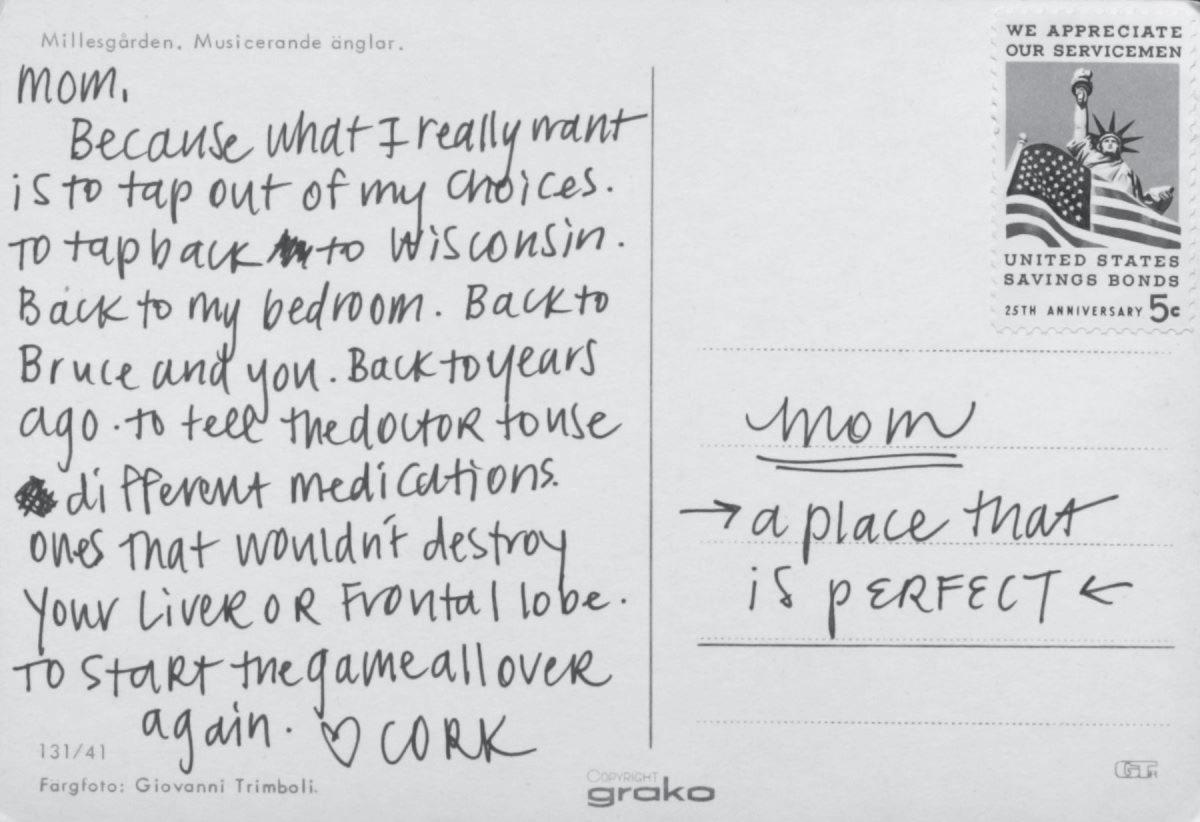 Millesgården. Musicerande änglar.
Mom,
Because what I really want
is to tap out of my choices.
To tap back to Wisconsin.
Back to my bedroom. Back to
Bruce and you. Back to years
ago. To tell the doctor to use
different medications.
ones that wouldn't destroy
your Liver OR Frontal lobe.
To START the game all over
again. ♡ CORK
131/41
Färgfoto: Giovanni Trimboli.
COPYRIGHT
grako
WE APPRECIATE
OUR SERVICEMEN
UNITED STATES
SAVINGS BONDS
25TH ANNIVERSARY 5c
mom
→ a place that
is PERFECT ←